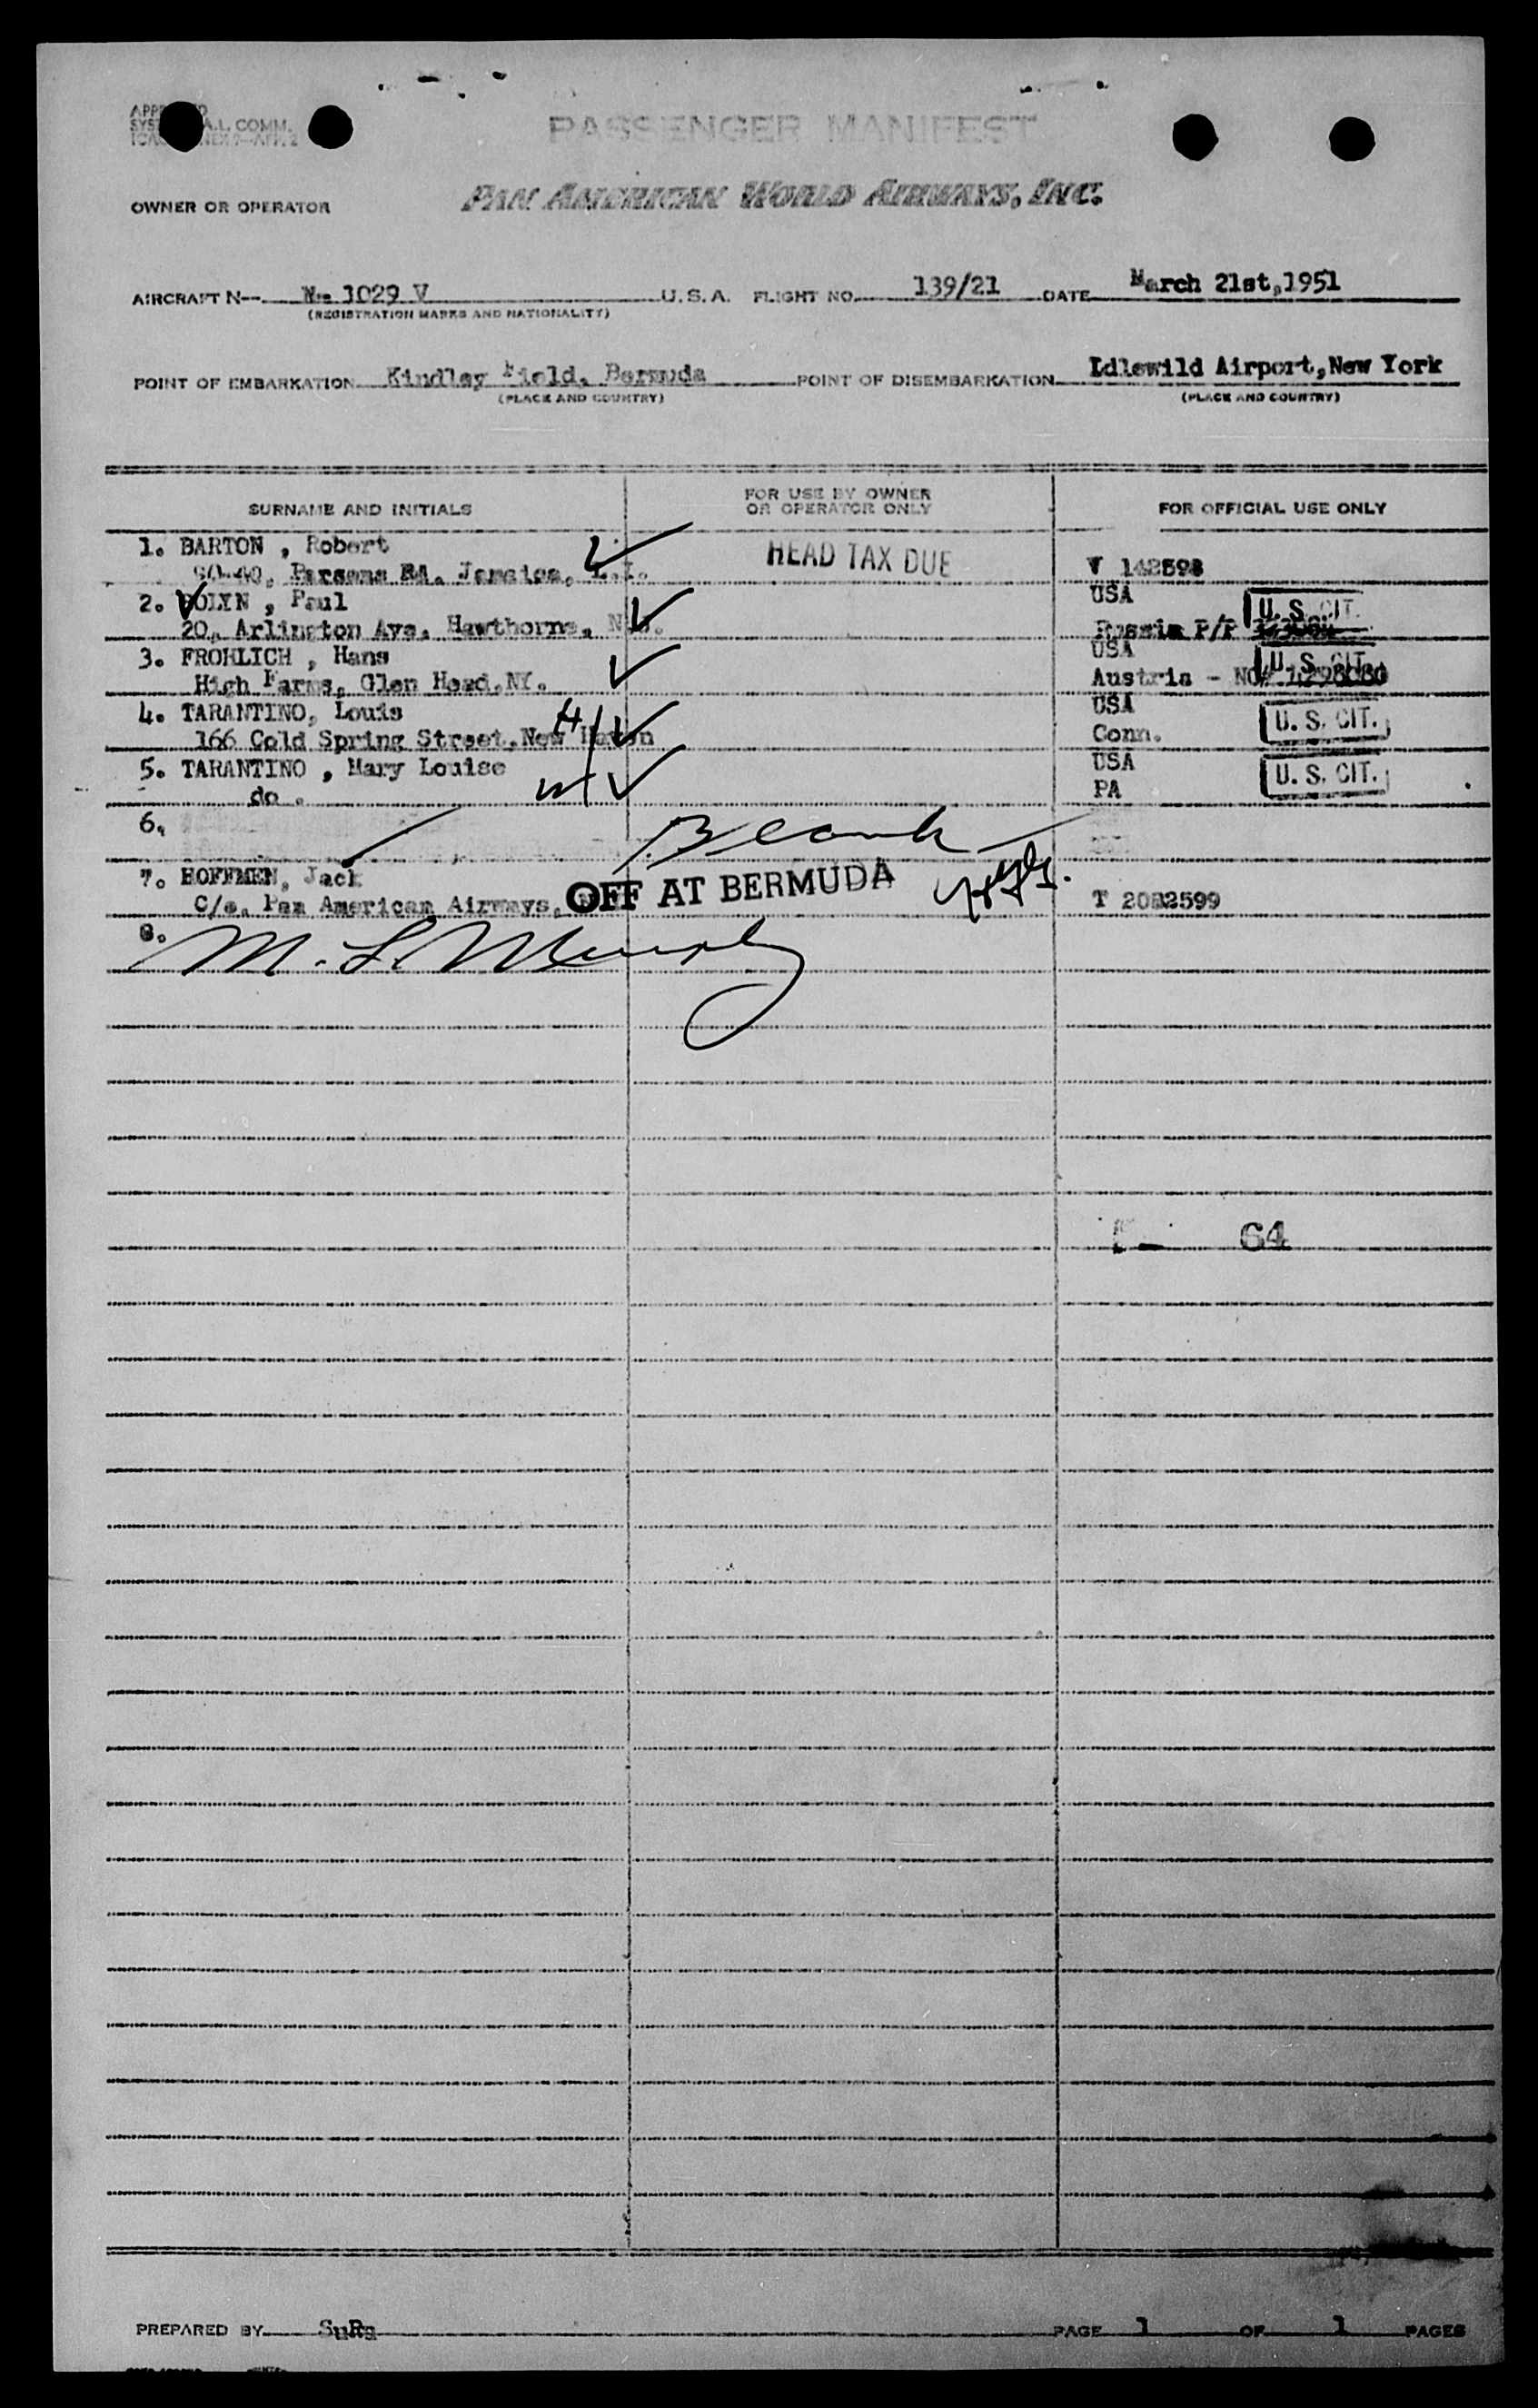 PASSENGER MANIFEST
OWNER OR OPERATOR PAN AMERICAN WORLD AIRWAYS, INC.
AIRCRAFT N-- N- 1029 V U.S.A. FLIGHT NO. 139/21 DATE March 21st,1951
(REGISTRATION MARKS AND NATIONALITY)
POINT OF EMBARKATION Kindley Field, Bermuda POINT OF DISEMBARKATION Idlewild Airport,New York
(PLACE AND COUNTRY) (PLACE AND COUNTRY)
SURNAME AND INITIALS FOR USE BY OWNER OR OPERATOR ONLY FOR OFFICIAL USE ONLY
1. BARTON , Robert HEAD TAX DUE
Parsons Rd. Jamaica, L.I. V 142598
2. , Paul USA U.S. CIT.
20, Arlington Ave. Hawthorne, Russia P/P
3. FROHLICH , Hans USA U.S. CIT.
High Farms, Glen Head,NY. Austria -
4. TARANTINO, Louis USA
166 Cold Spring Street,New H Conn. U.S. CIT.
5. TARANTINO , Mary Louise USA
do . PA U.S. CIT.
6. Blank
7. HOFFMEN, Jack OFF AT BERMUDA
C/o. Pan American Airways, T 2082599
8. M. L. Murphy
64
PREPARED BY SuRs PAGE 1 OF 1 PAGES